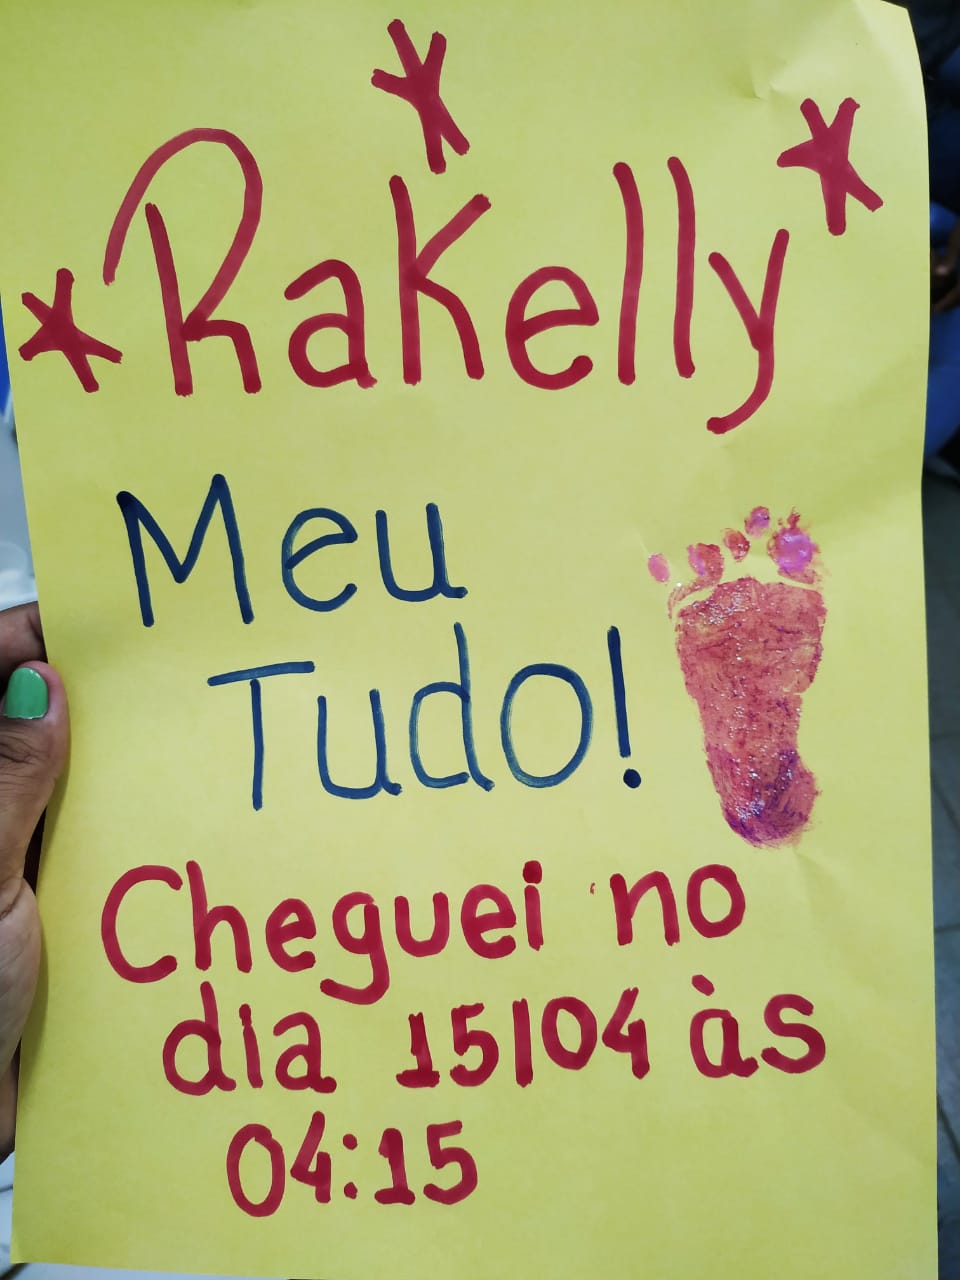 Rakelly
Meu
Tudo!
Cheguei no
dia 15/04 às
04:15